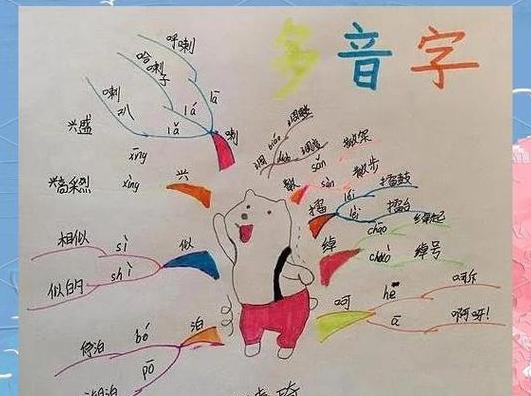 多音字
呼喇
lā
哈喇子
lá
喇叭
lǎ
喇
兴盛
xīng
兴高采烈
xìng
兴
相似
sì
似的
shì
似
停泊
bó
泊
pō
调
散架
sǎn
散
散步
sàn
擂鼓
léi
擂
擂台
lèi
绰起
chāo
绰
绰号
chuò
呵斥
hē
呵
啊呀!
ā